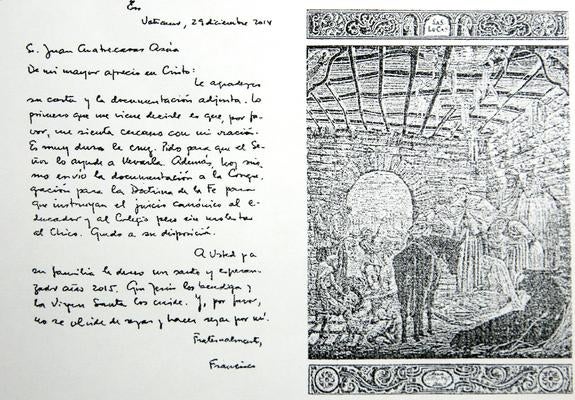 Vaticano, 29 diciembre 2014
S. Juan Cuatrecasas Asúa
De mi mayor aprecio en Cristo:
Le agradezco
su carta y la documentación adjunta. Lo
primero que me viene decirle es que, por fa-
vor, me sienta cercano con mi oración.
Es muy dura la cruz. Pido para que el Se-
ñor lo ayude a llevarla. Además, hoy mis-
mo envío la documentación a la Congre-
gación para la Doctrina de la Fe para
que instruyan el juicio canónico al e-
ducador y al Colegio pero sin molestar
al Chico. Quedo a su disposición.
A Usted y a
su familia le deseo un santo y esperan-
zado año 2015. Que Jesús los bendiga y
la Virgen Santa los cuide. Y, por favor,
no se olvide de rezar y hacer rezar por mí.
Fraternalmente,
Francisco
SAS
LUCAS